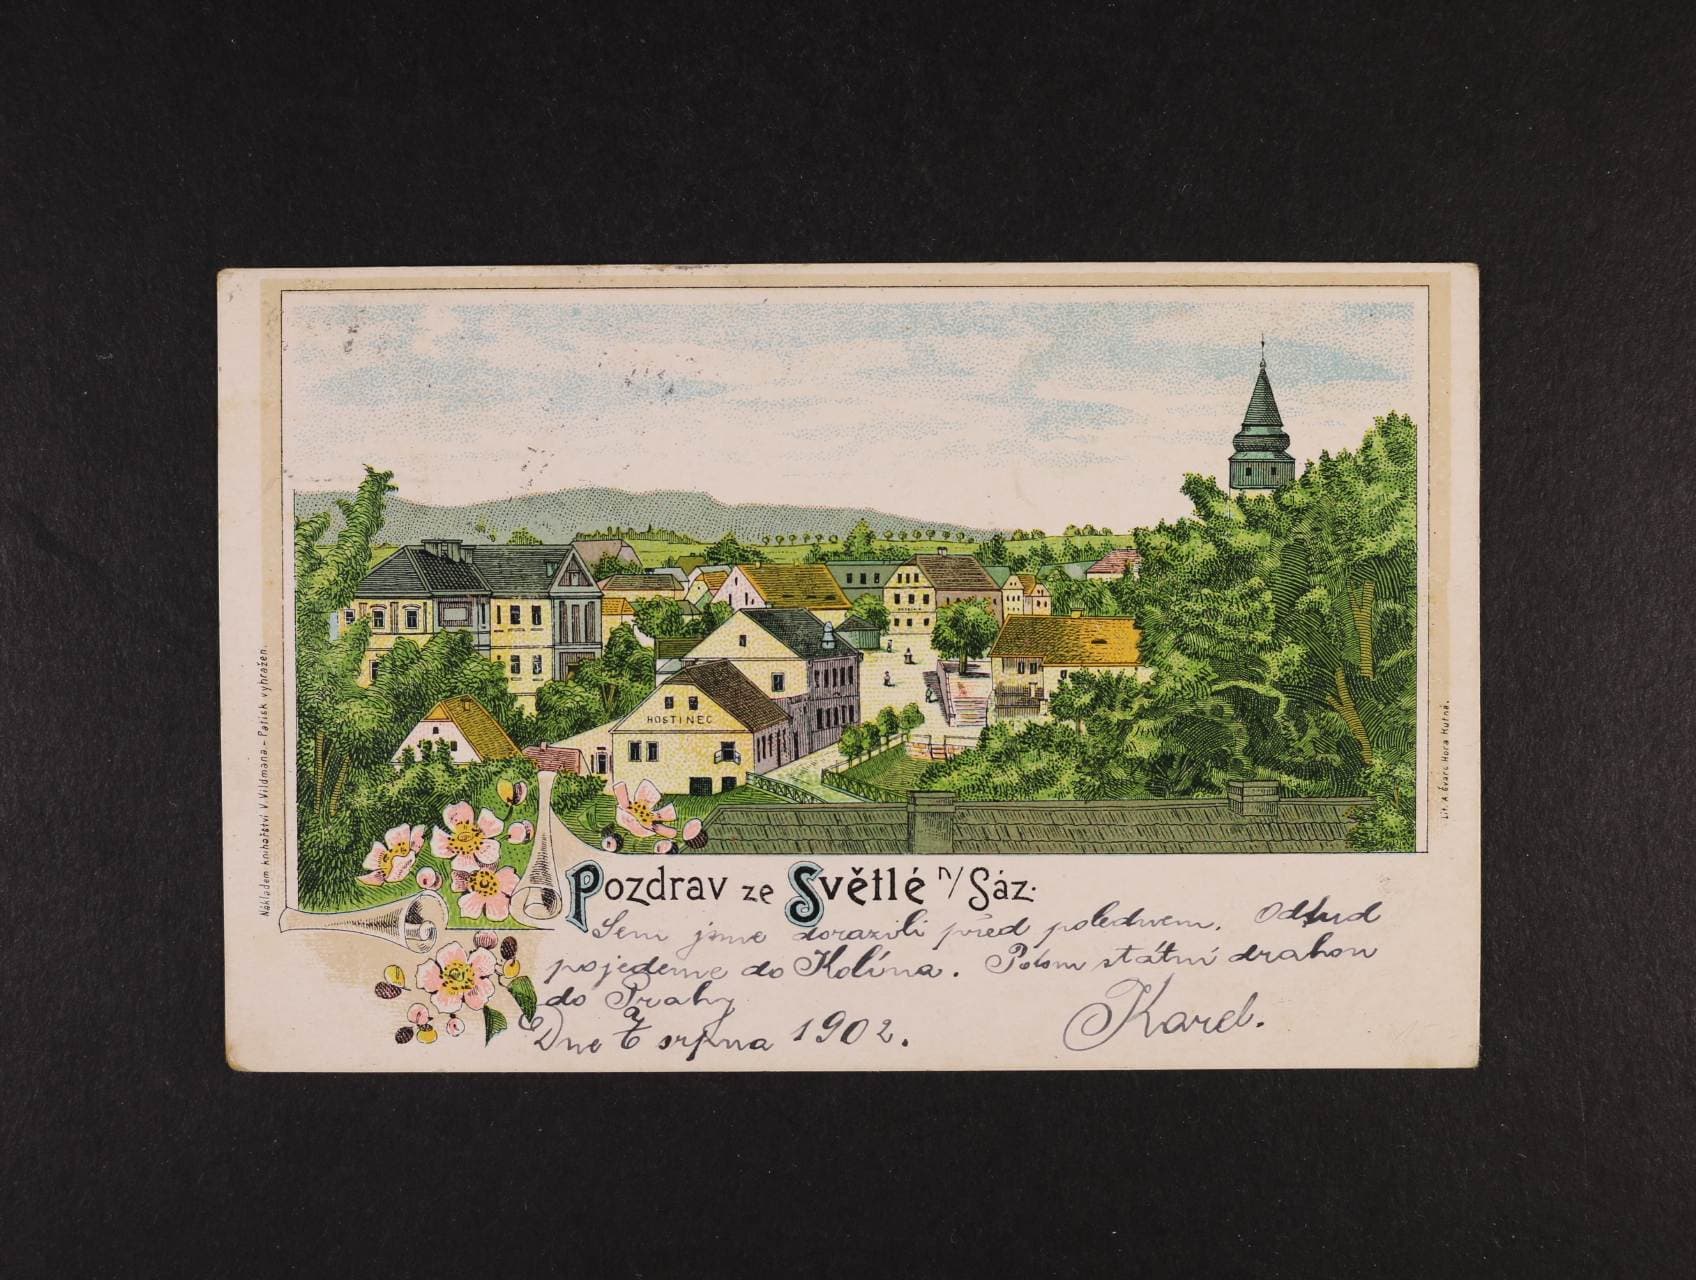 Nákladem knihařství V. Vildmana.- Patisk vyhražen.
HOSTINEC
Lit. A. Švarc Hora Kutná.
Pozdrav ze Světlé n/Sáz.
Sem jsme dorazili před polednem. Odtud
pojedeme do Kolína. Potom státní drahou
do Prahy
Dne srpna 1902.
Karel.